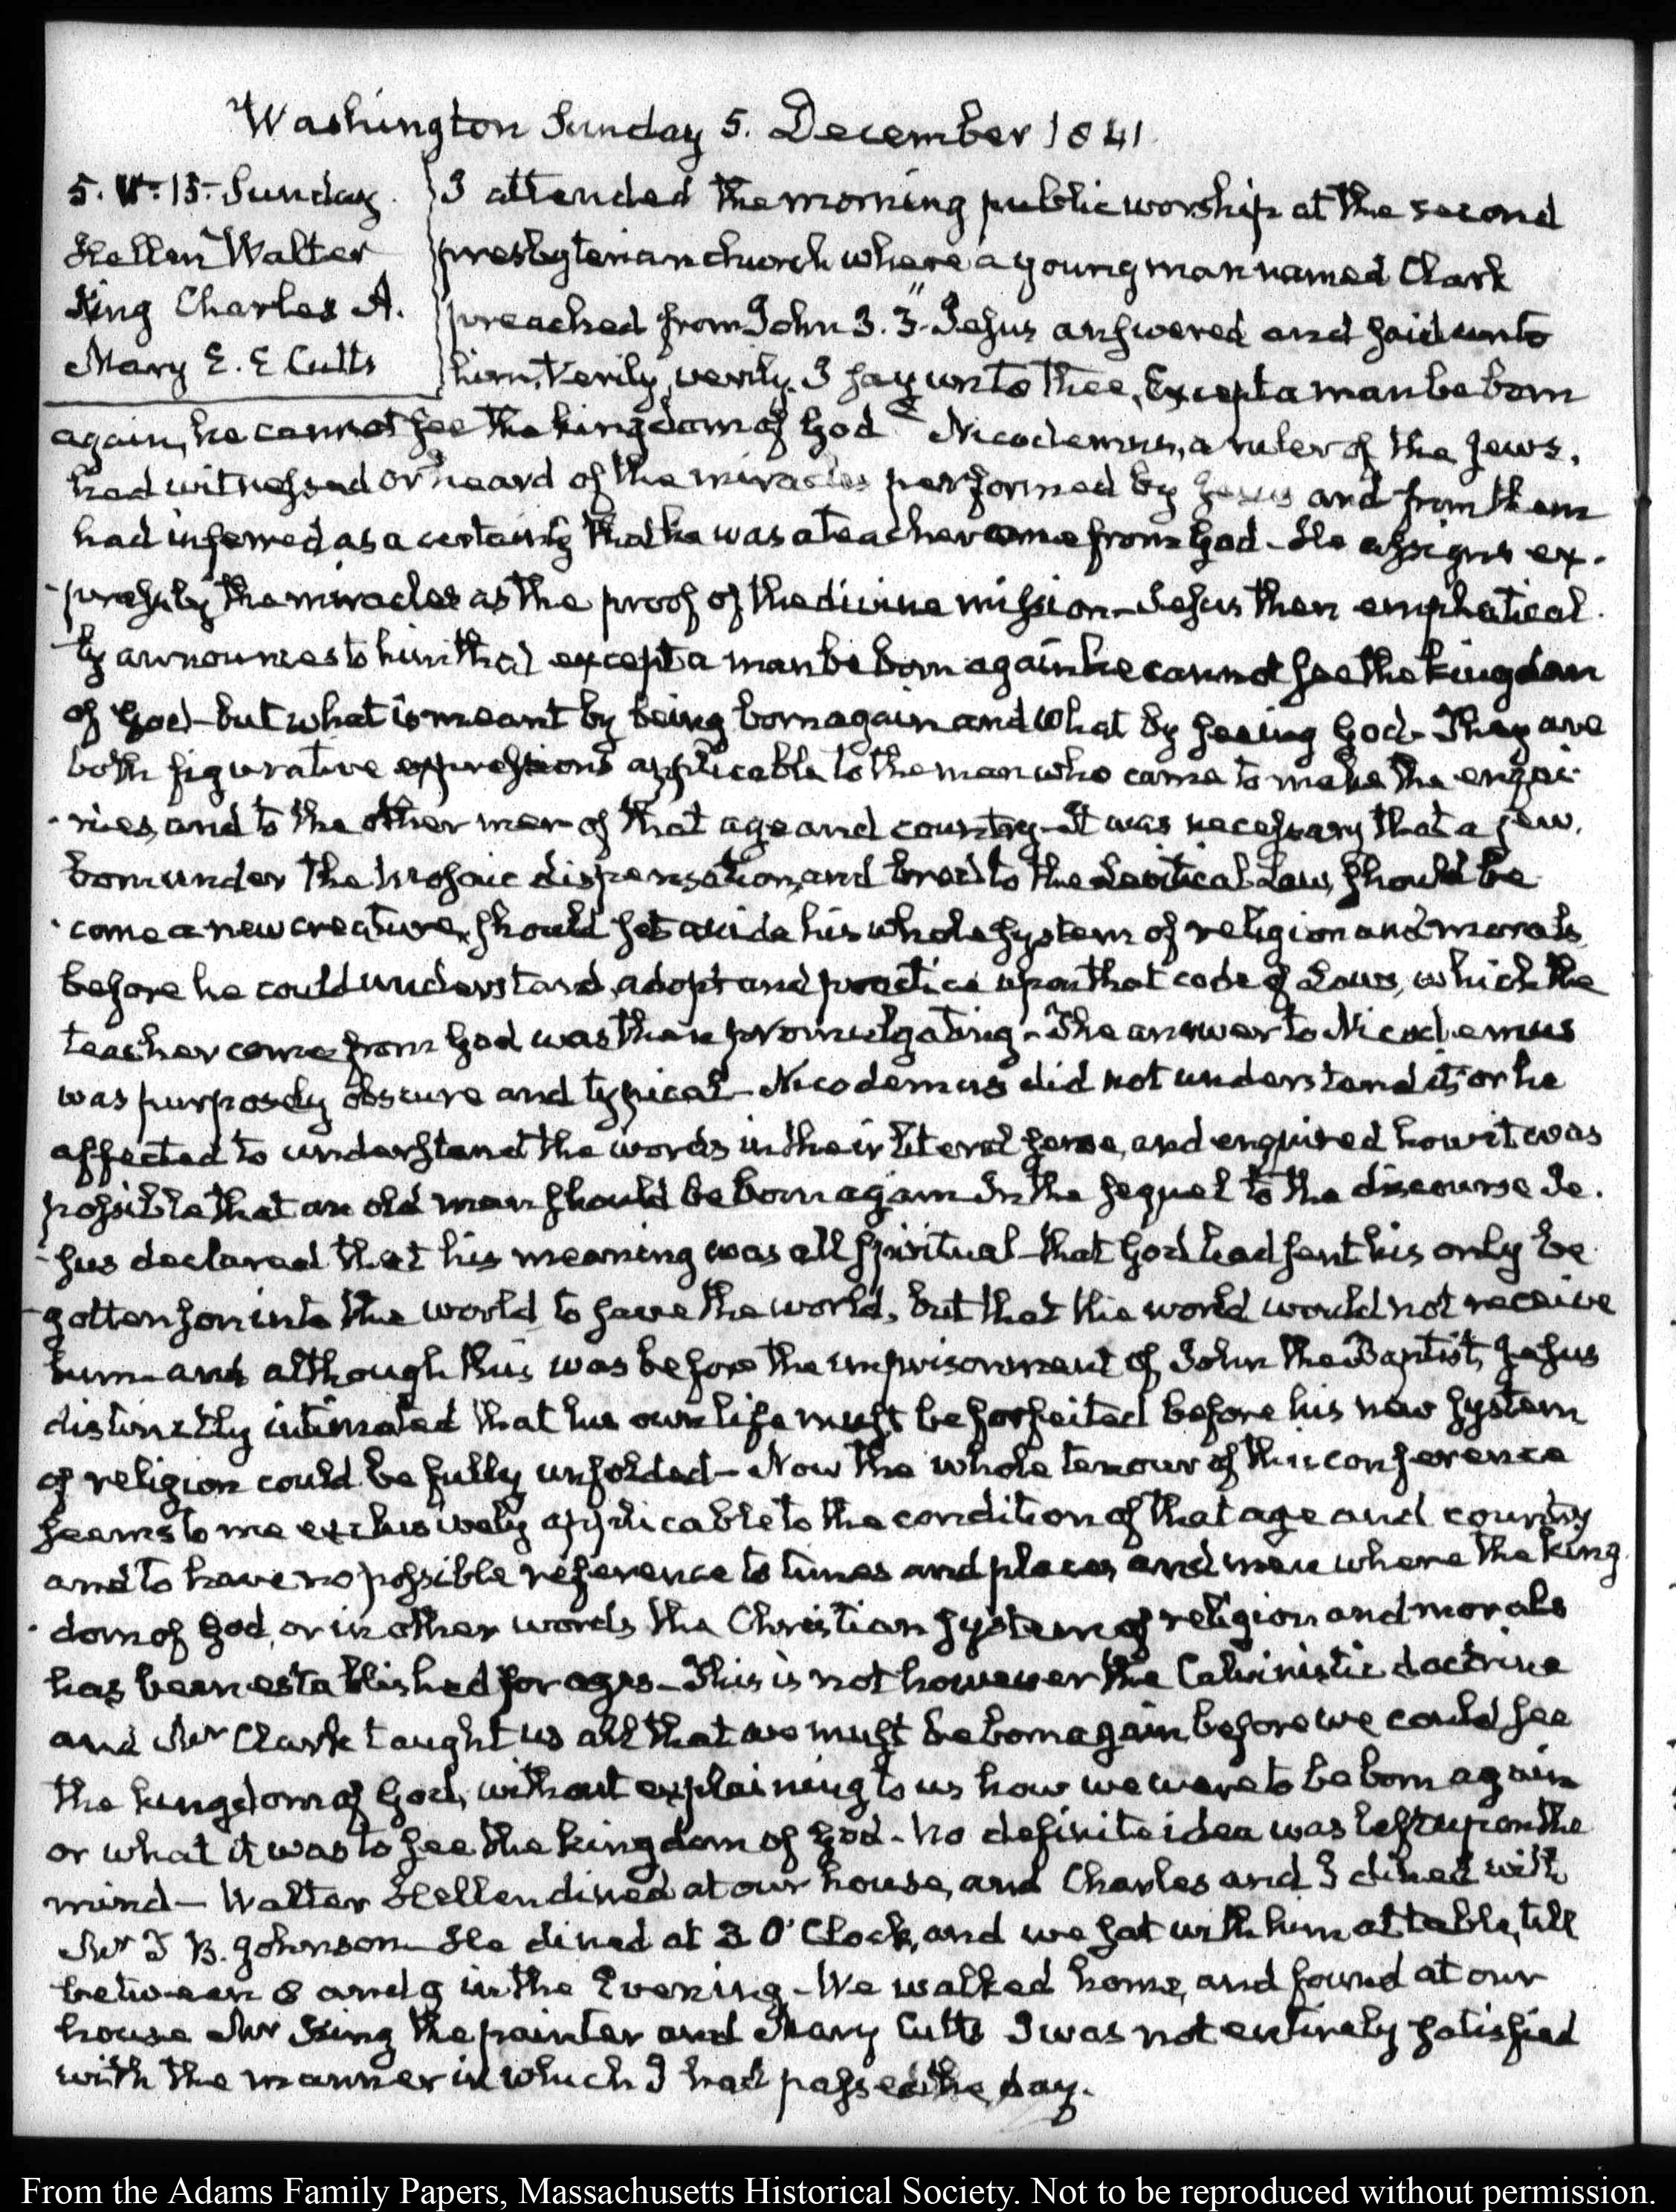 Washington Sunday 5. December 1841.
5. V. 15. Sunday.
Hellen Walter
King Charles A.
Mary E. E Cutts
I attended the morning public worship at the second
presbyterian church where a young man named Clark
preached from John 3. 3. "Jesus answered and said unto
him, Verily, verily, I say unto thee, Except a man be born
again, he cannot see the kingdom of God" Nicodemus, a ruler of the Jews,
had witnessed or heard of the miracles performed by Jesus and from them
had inferred as a certainty that he was a teacher come from God - He assigns ex-
-pressly the miracles as the proof of the divine mission - Jesus then emphatical-
-ly announces to him that except a man be born again he cannot see the kingdom
of God - but what is meant by being born again and what by seeing God - They are
both figurative expressions applicable to the man who came to make the enqui-
-ries, and to the other men of that age and country - It was necessary that a Jew,
born under the Mosaic dispensation, and bred to the Levitical Law, should be-
-come a new creature, should set aside his whole system of religion and morals
before he could understand, adopt and practice upon that code of Laws, which the
teacher come from God was then promulgating - The answer to Nicodemus
was purposely obscure and typical - Nicodemus did not understand it, or he
affected to understand the words in their literal sense, and enquired how it was
possible that an old man should be born again - In the sequel to the discourse Je-
-sus declared that his meaning was all spiritual - that God had sent his only be-
-gotten son into the world to save the world, but that the world would not receive
him - and although this was before the imprisonment of John the Baptist, Jesus
distinctly intimated that his own life must be forfeited before his new system
of religion could be fully unfolded - Now the whole tenour of this conference
seems to me exclusively applicable to the condition of that age and country
and to have no possible reference to times and places and men where the king-
-dom of God, or in other words the Christian system of religion and morals
has been established for ages - This is not however the Calvinistic doctrine
and Mr Clark taught us all that we must be born again before we could see
the kingdom of God, without explaining to us how we were to be born again
or what it was to see the kingdom of God - No definite idea was left upon the
mind - Walter Hellen dined at our house, and Charles and I dined with
Mr J B. Johnson - He dined at 3 O'Clock, and we sat with him at table, till
between 8 and 9 in the Evening - We walked home, and found at our
house Mr King the painter and Mary Cutts I was not entirely satisfied
with the manner in which I had passed the day.
From the Adams Family Papers, Massachusetts Historical Society. Not to be reproduced without permission.